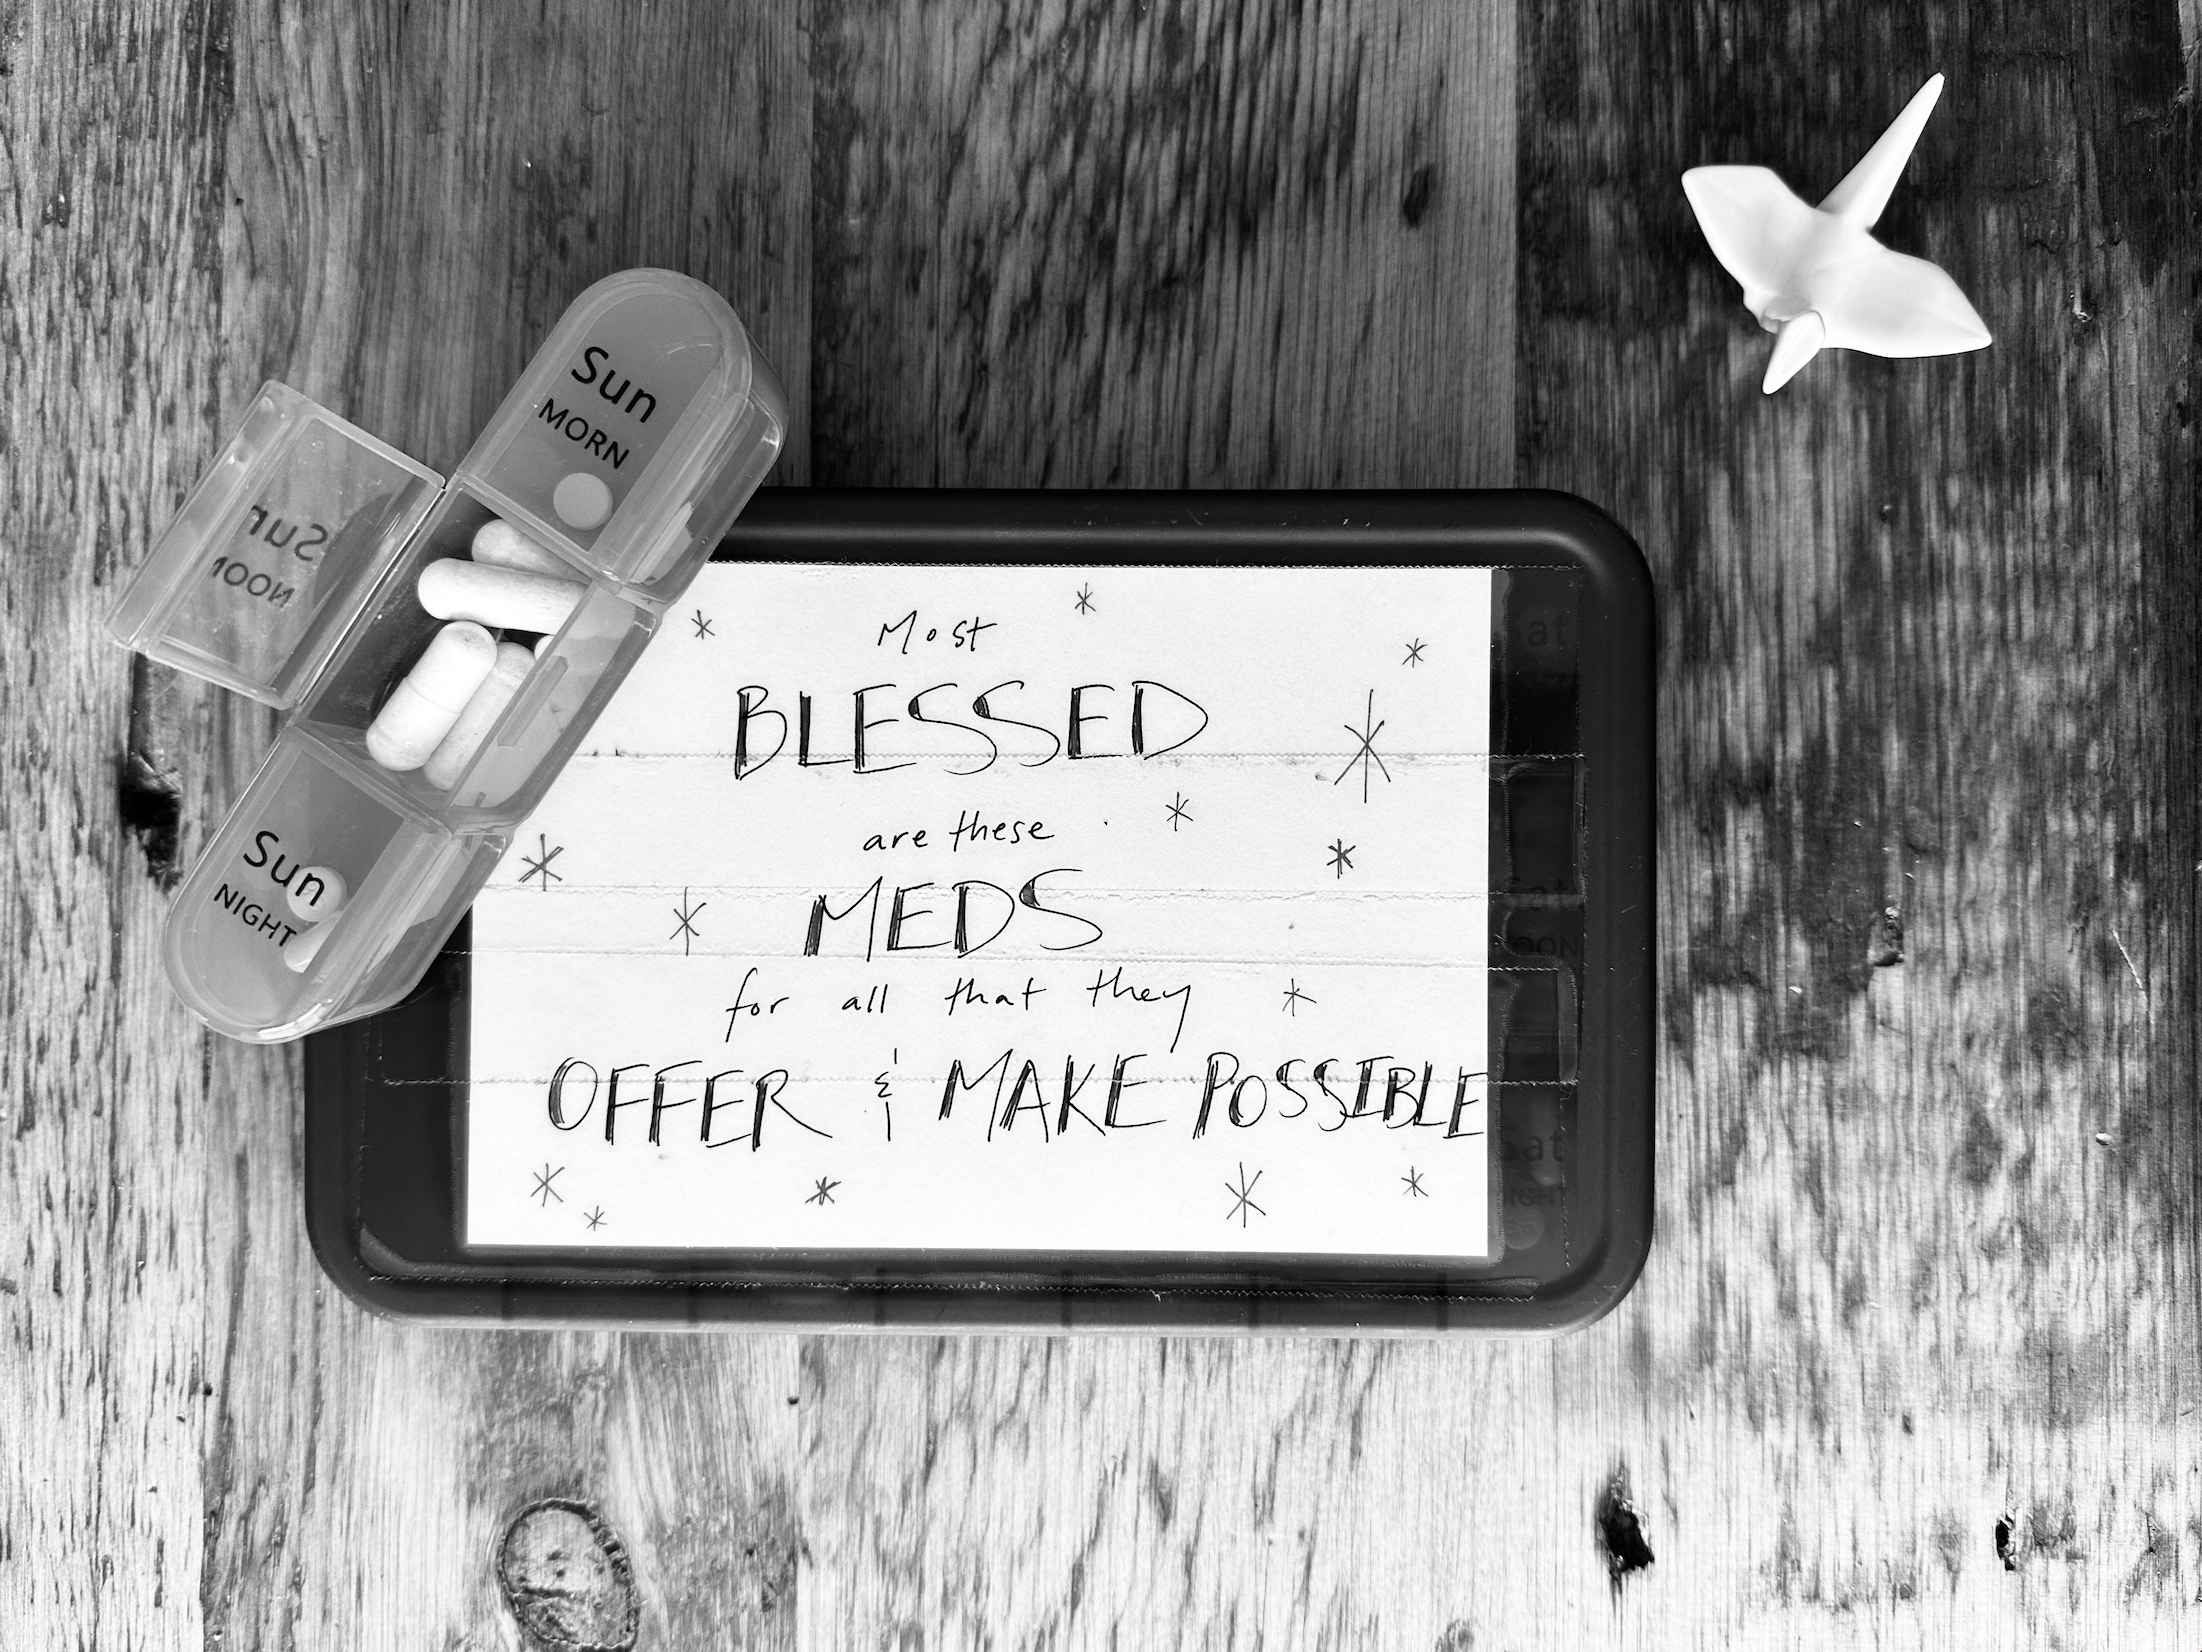 Sun
MORN
Sun
NOON
Sun
NIGHT
Most
BLESSED
are these
MEDS
for all that they
OFFER & MAKE POSSIBLE
Sat
Sat
NOON
Sat
NIGHT